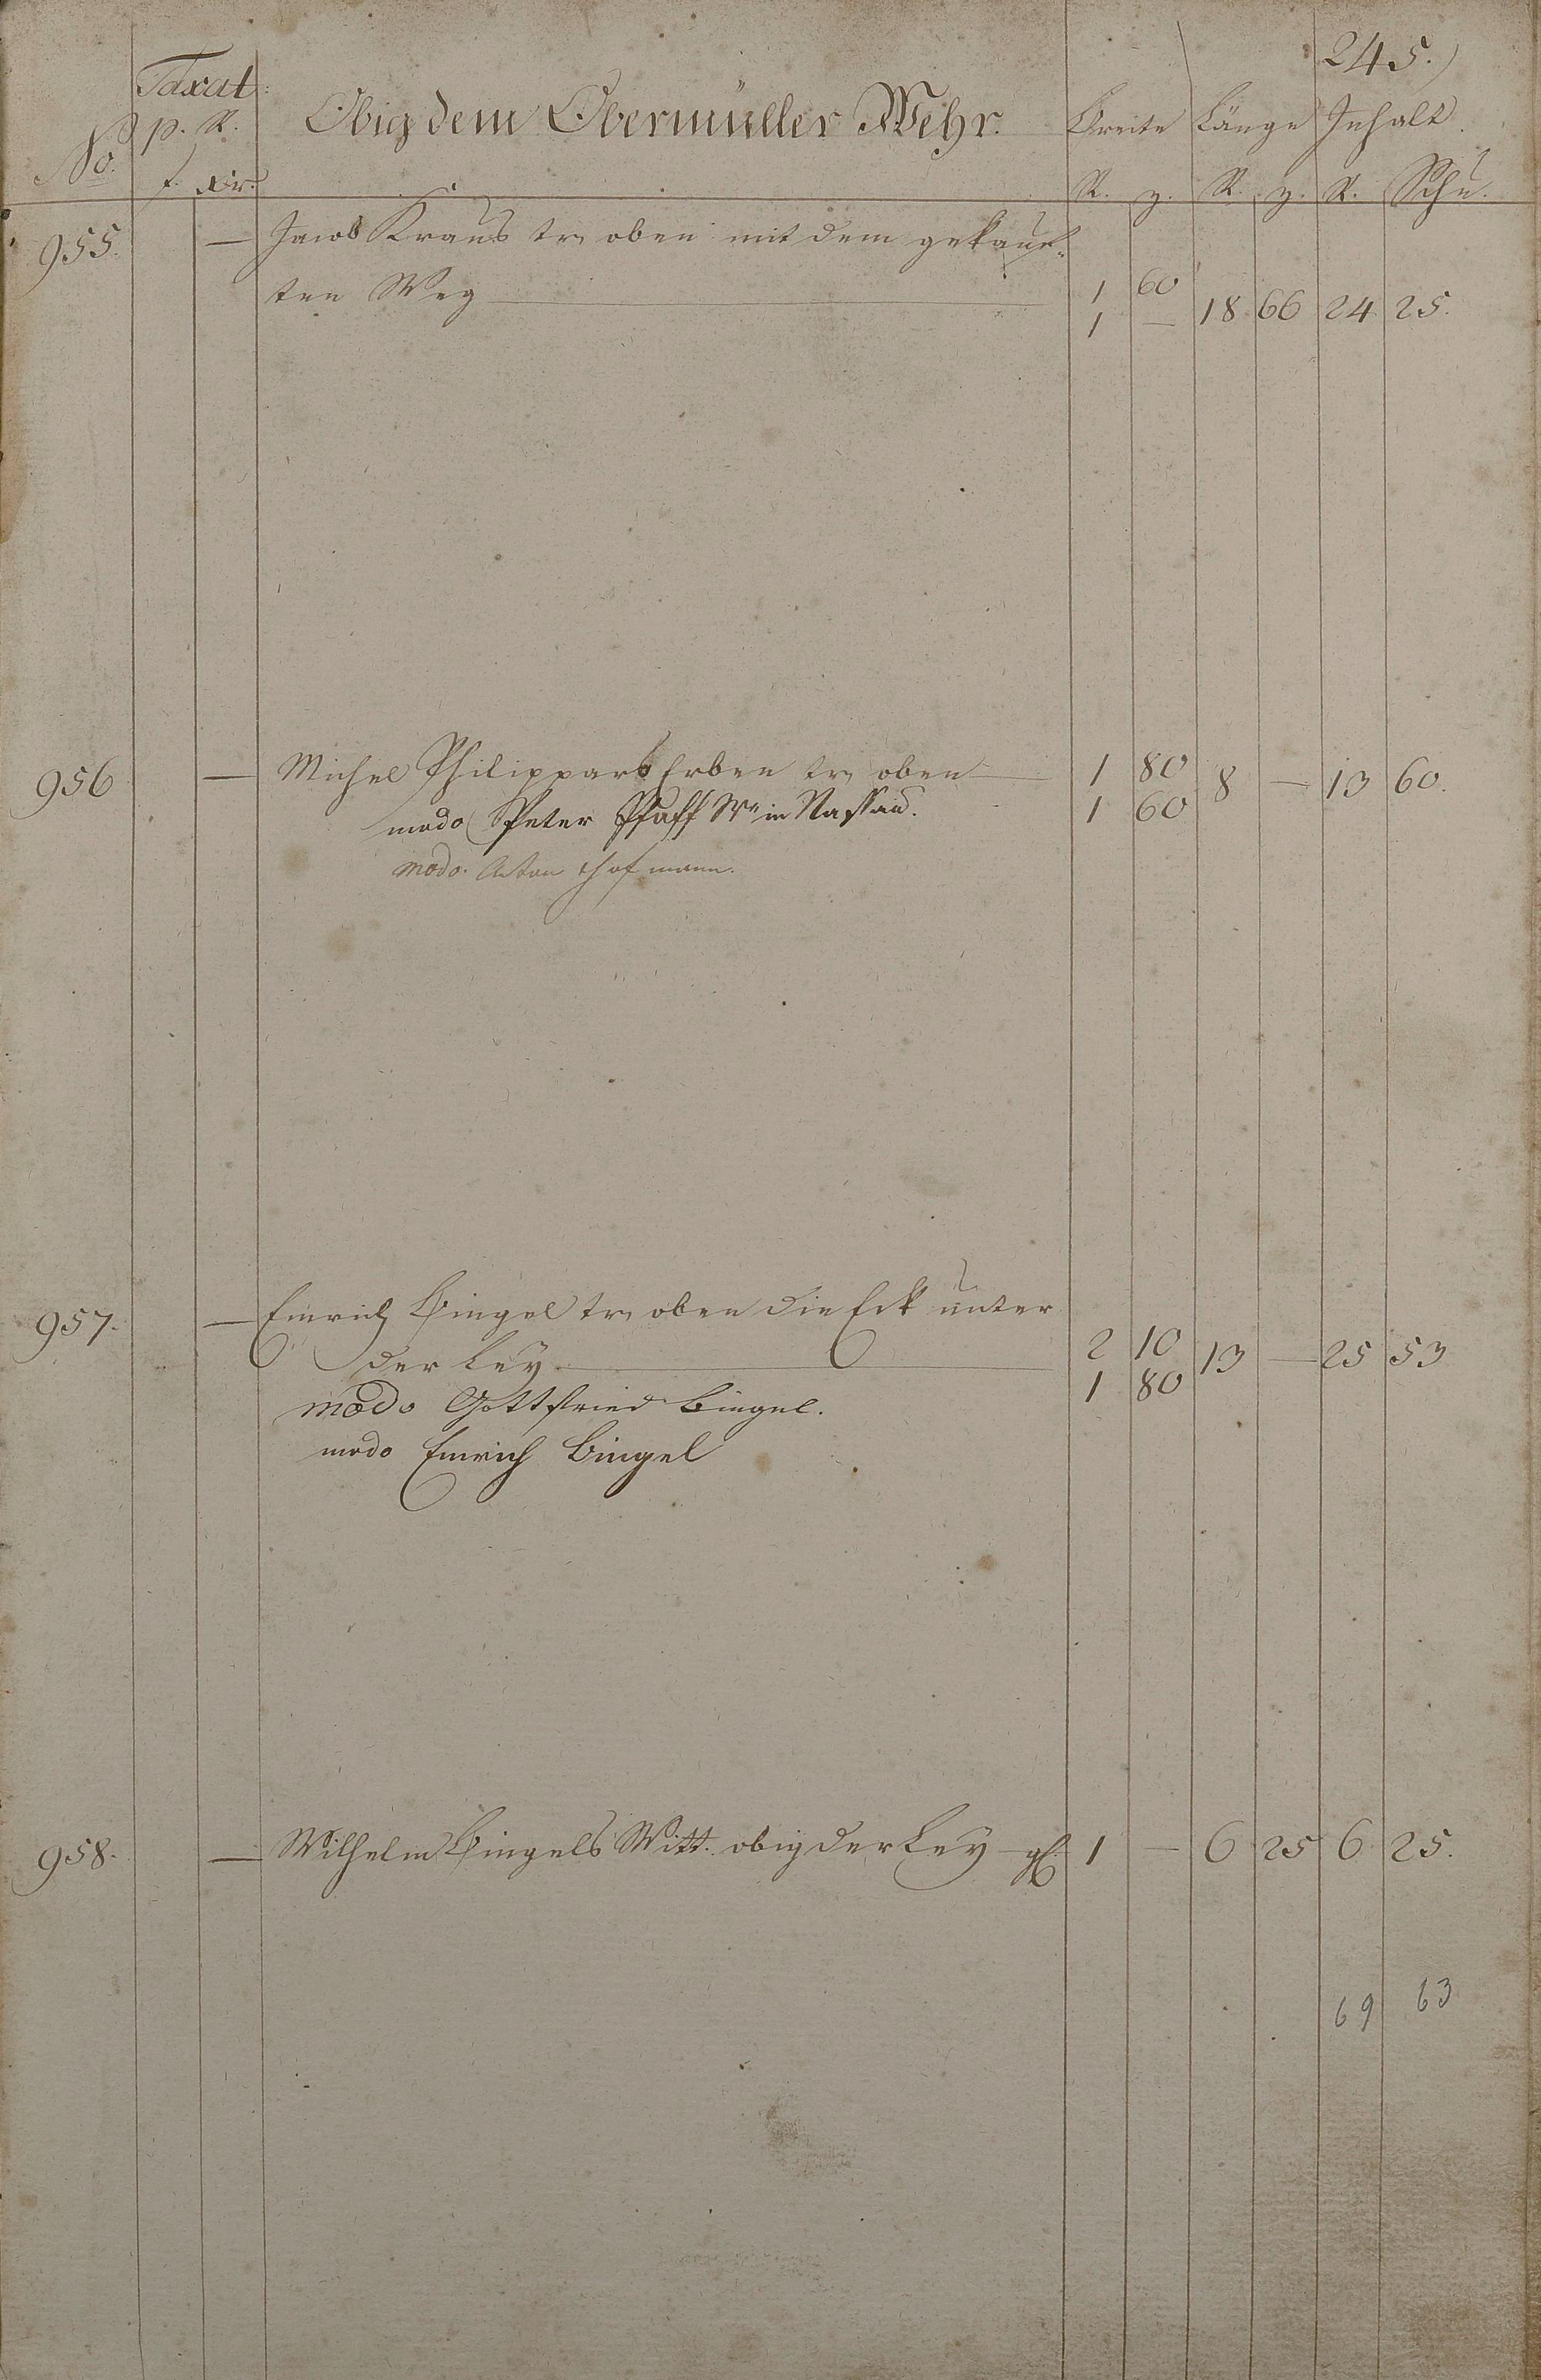 245.
Taxat:
No. p. R. Obig dem Obermüller Wehr. Breite Länge Inhalt.
f. xr. R. z. R. z. R. Schu.
955. — Jacob Kraus tr. oben mit dem gekauf-
ten Weg — 1 60 18 66 24 25.
1 —
956 — Michel Philippars Erben tr. oben — 1 80 8 — 13 60.
modo Peter Pfaff in Nassau. 1 60
modo. Anton Hofmann.
957. — Emrich Bingel tr. oben die Eck unter
der Ley — 2 10 13 — 25 53
modo Gottfried Bingel. 1 80
modo Emrich Bingel
958. — Wilhelm Bingels Witt. obig der Ley — gl. 1 — 6 25 6 25.
69 63